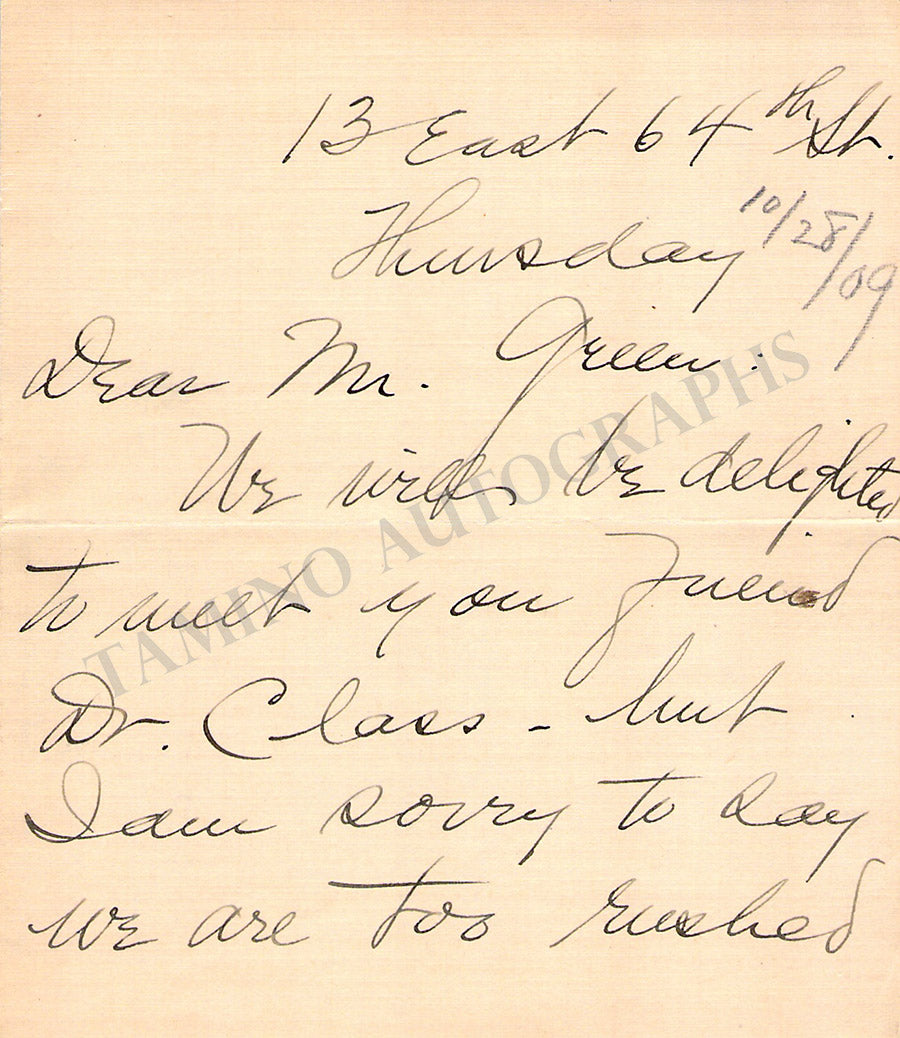 13 East 64th St.
Thursday 10/28/09
Dear Mr. Green:
We will be delighted
to meet you friend
Dr. Class - but
I am sorry to say
we are too rushed
TAMINO AUTOGRAPHS